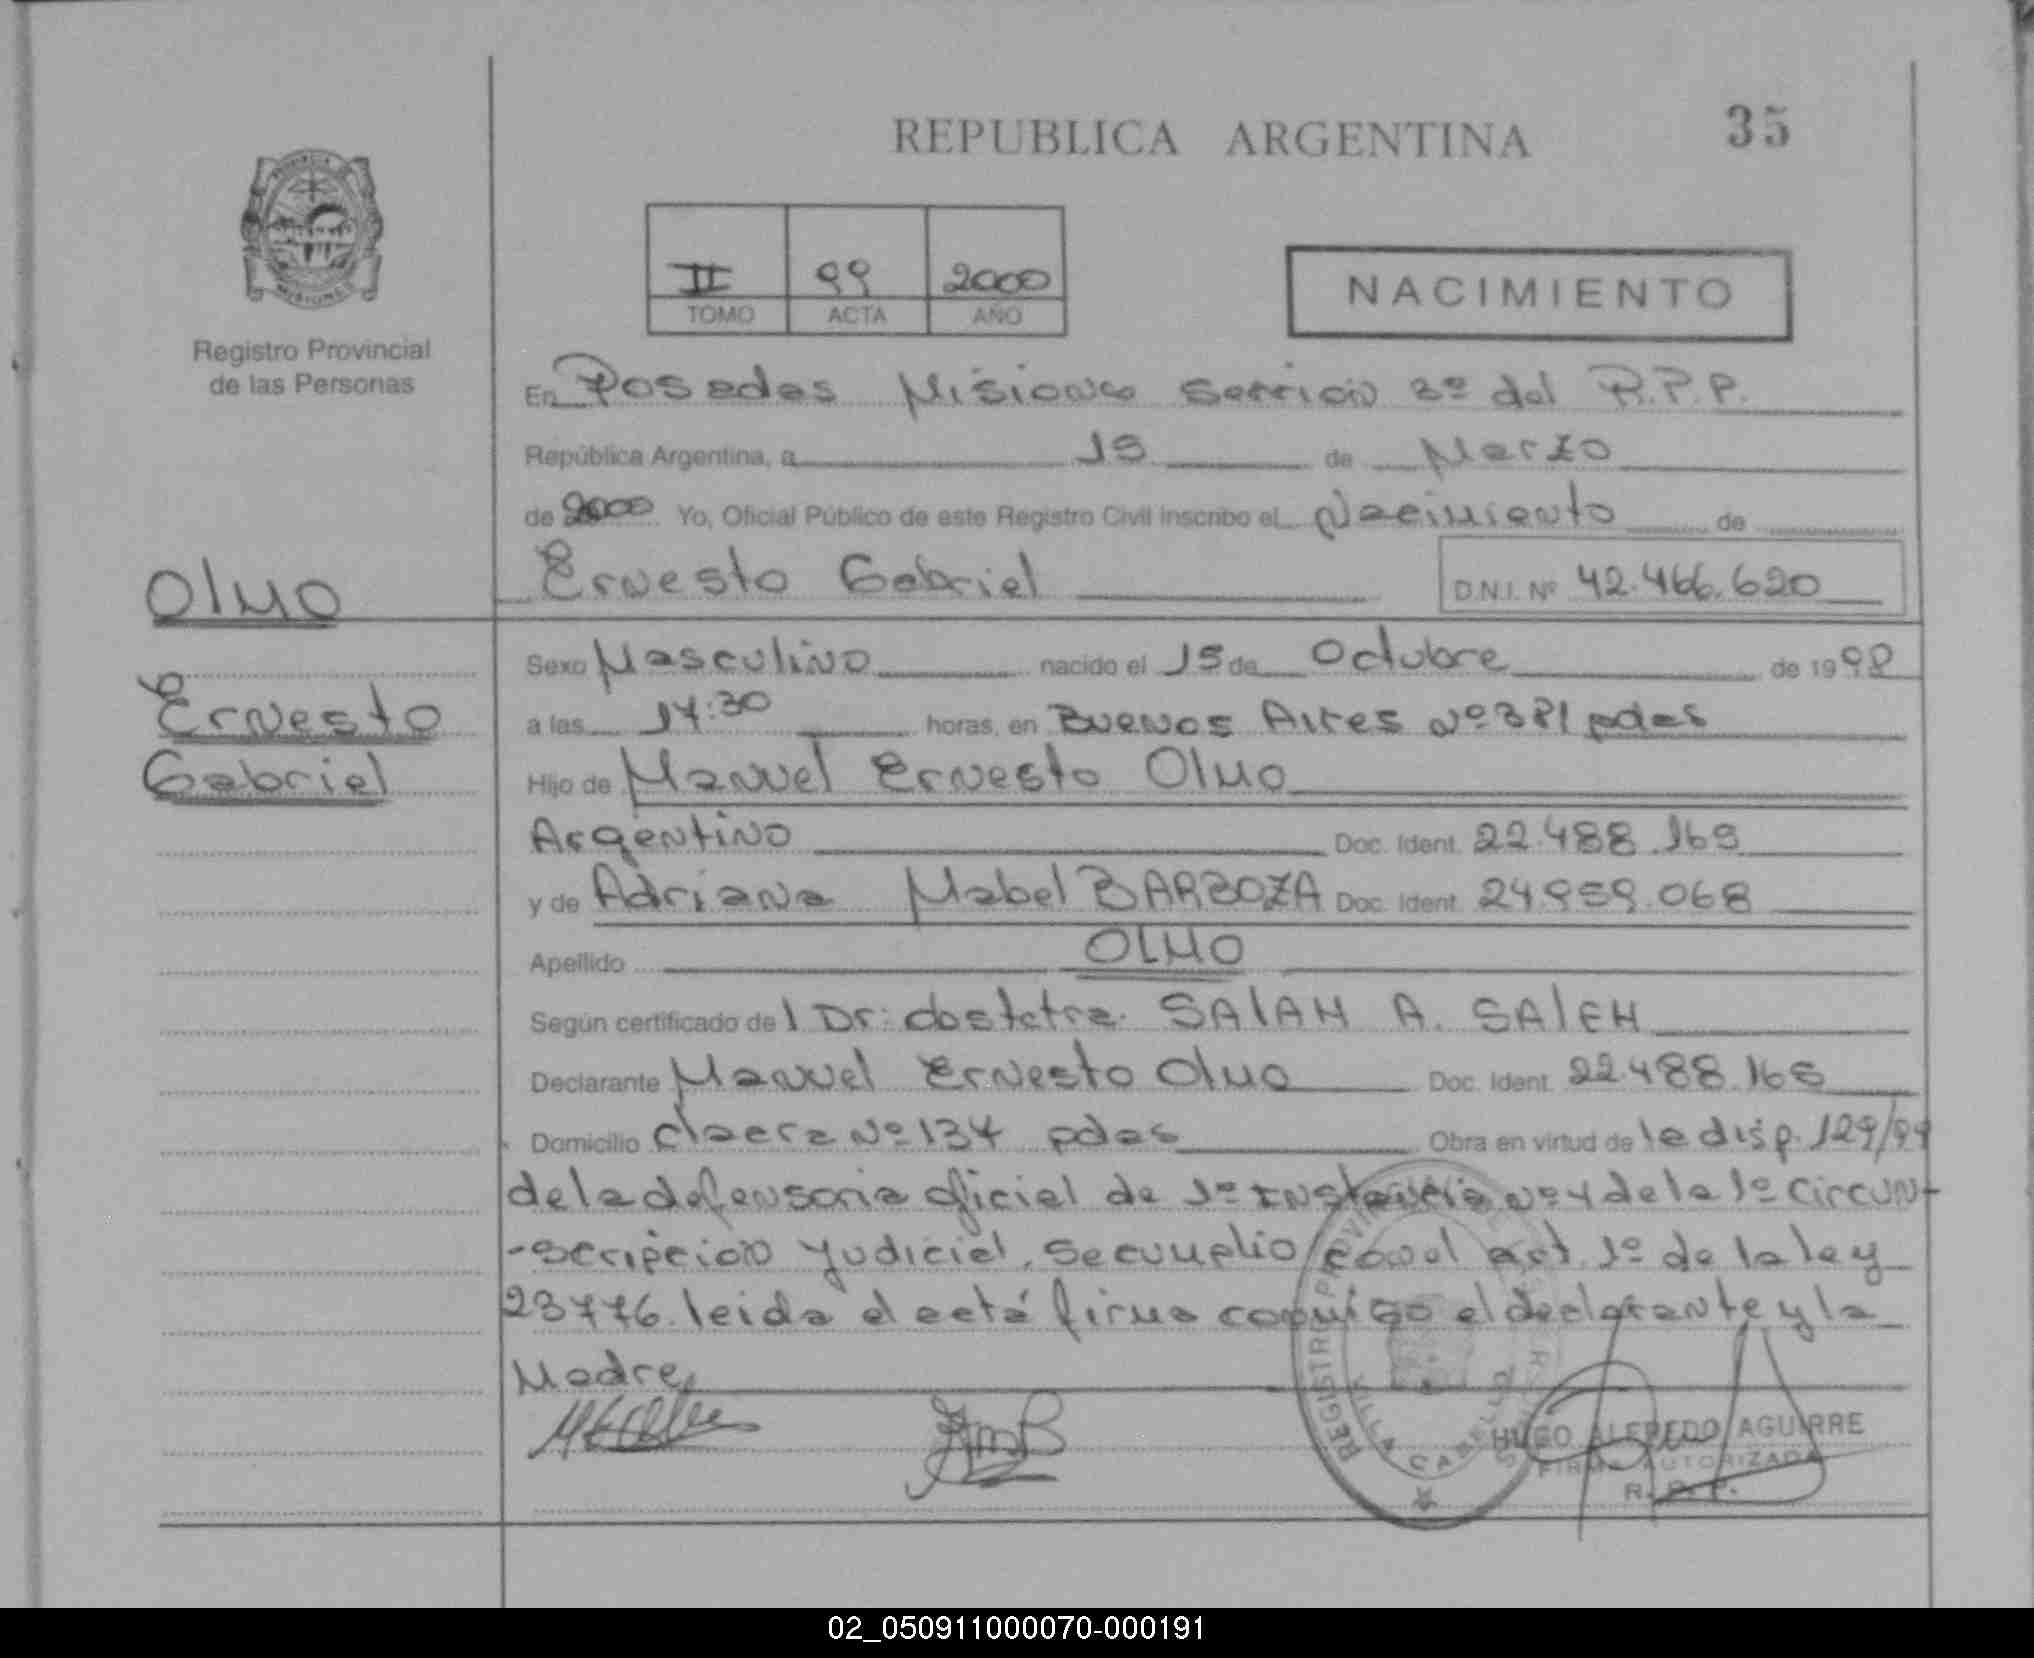 REPUBLICA ARGENTINA
35
II 99 2000
TOMO ACTA AÑO
NACIMIENTO
Registro Provincial
de las Personas
En Posadas Misiones Sección 3º del R.P.P.
República Argentina, a 15 de Marzo
de 2000 Yo, Oficial Público de este Registro Civil inscribo el Nacimiento de
Ernesto Gabriel D.N.I. Nº 42.466.620
Olmo
Ernesto
Gabriel
Sexo Masculino nacido el 15 de Octubre de 1998
a las 14:30 horas, en Buenos Aires Nº 381 pdas
Hijo de Manuel Ernesto Olmo
Argentino Doc. Ident. 22.488.169
y de Adriana Mabel BARBOZA Doc. Ident. 24.959.068
Apellido OLMO
Según certificado de l Dr: obstetra. SAlAH A. SAlEH
Declarante Manuel Ernesto Olmo Doc. Ident. 22.488.165
Domicilio Nº 134 pdas Obra en virtud de la disp. 129/99
de la defensoria oficial de 1º Instancia Nº 4 de la 1º Circun-
-scripcion Judicial. Se cumplio con el art. 1º de la ley
23776. leida el acta firma conmigo el declarante y la
Madre
REGISTRO PROVINCIAL
VILLA CABELLO
HUGO ALFREDO AGUIRRE
FIRMA AUTORIZADA
R. P. P.
02_050911000070-000191